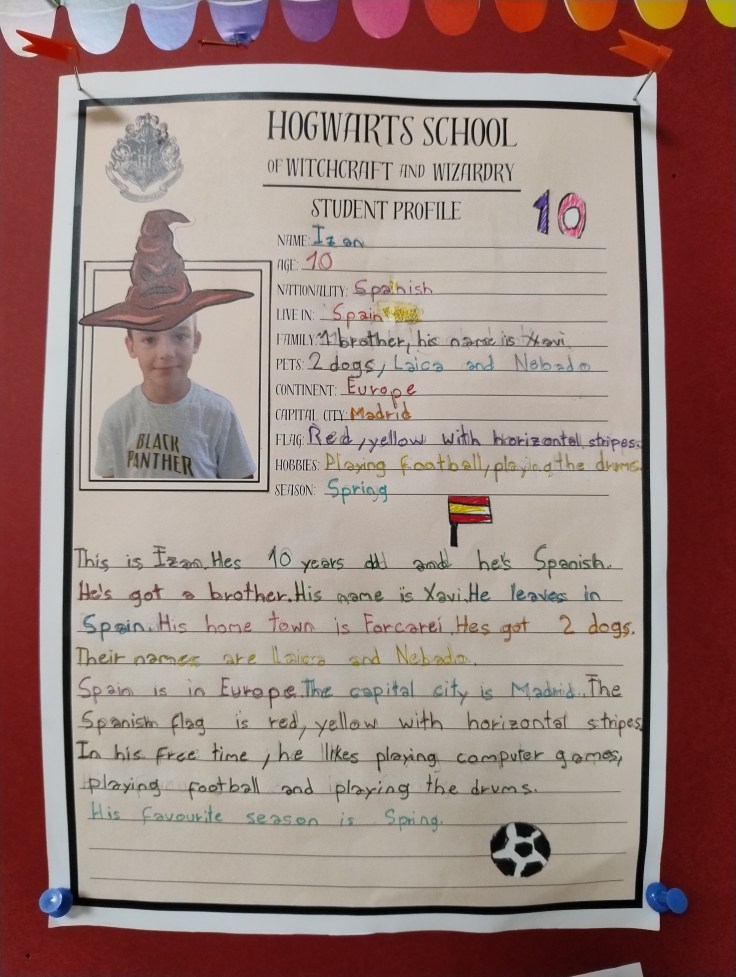 HOGWARTS SCHOOL
OF WITCHCRAFT AND WIZARDRY
STUDENT PROFILE
10
NAME: Izan
AGE: 10
NATIONALITY: Spainish
LIVE IN: Spain
FAMILY: 1 brother, his name is Xavi.
PETS: 2 dogs, Laica and Nebado
CONTINENT: Europe
CAPITAL CITY: Madrid
FLAG: Red, yellow with horizontal stripes.
HOBBIES: Playing football, playing the drums.
SEASON: Spring
BLACK
PANTHER
This is Izan. Hes 10 years old and he's Spanish.
He's got a brother. His name is Xavi. He leaves in
Spain. His home town is Forcarei. Hes got 2 dogs.
Their names are Laica and Nebado.
Spain is in Europe. The capital city is Madrid. The
Spanish flag is red, yellow with horizontal stripes
In his free time, he likes playing computer games,
playing football and playing the drums.
His favourite season is Spring.